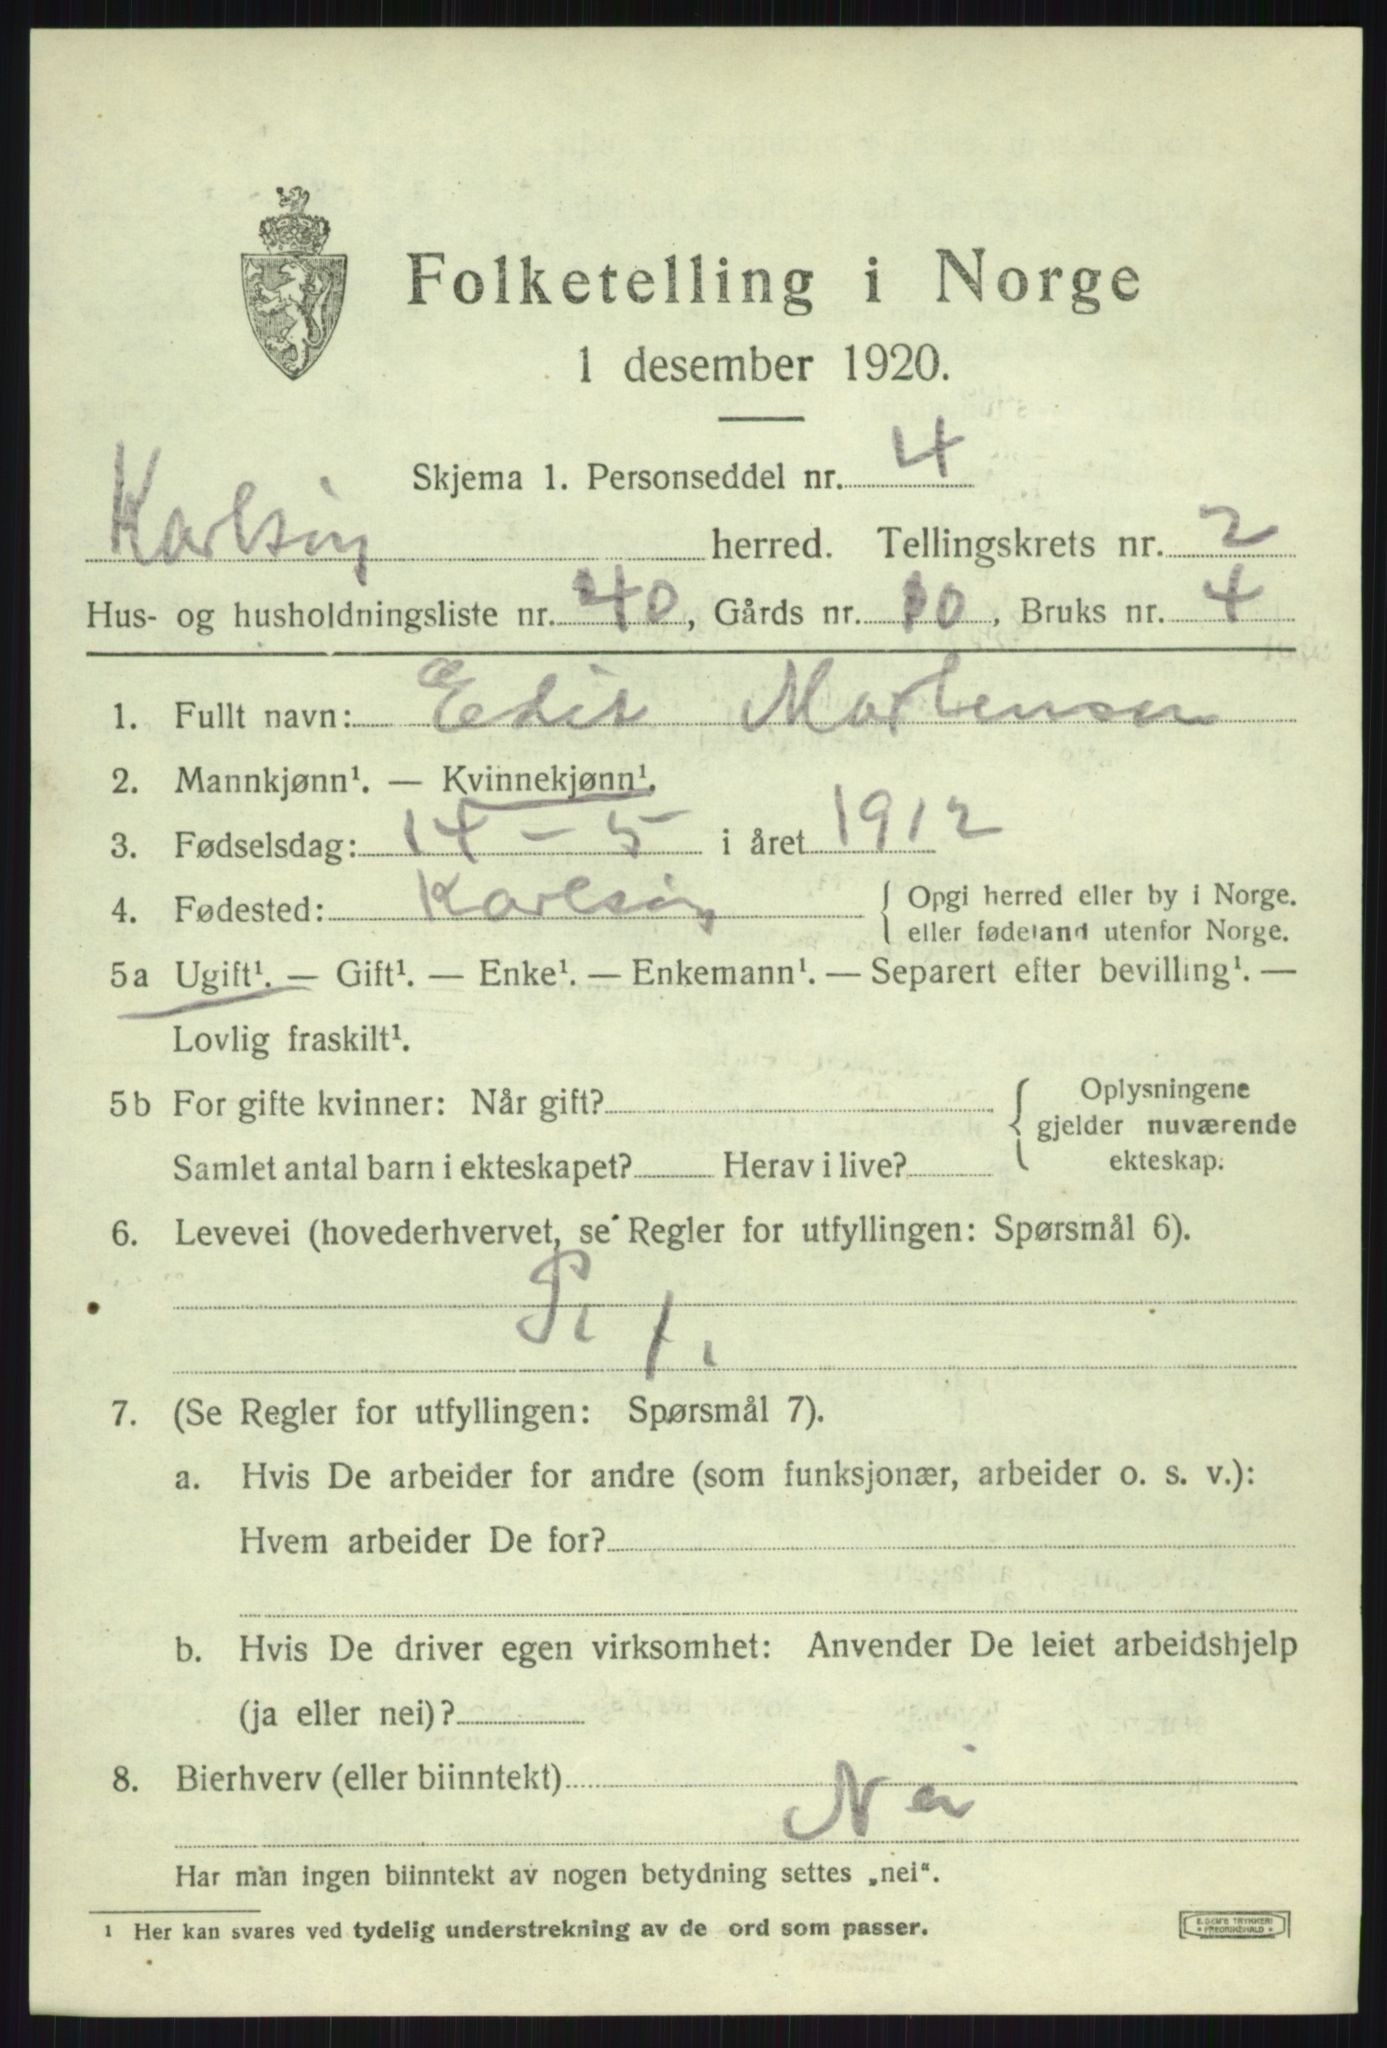 Folketelling i Norge
1 desember 1920.
Skjema 1. Personseddel nr. 4
Karlsöy herred. Tellingskrets nr. 2
Hus- og husholdningsliste nr. 40, Gårds nr. 10, Bruks nr. 4
1. Fullt navn: Edit Mortensen
2. Mannkjønn¹. — Kvinnekjønn¹.
3. Fødselsdag: 14 - 5 i året 1912
4. Fødested: Karlsöy { Opgi herred eller by i Norge.
eller fødeland utenfor Norge.
5a Ugift¹. — Gift¹. — Enke¹. — Enkemann¹. — Separert efter bevilling¹. —
Lovlig fraskilt¹.
5b For gifte kvinner: Når gift? { Oplysningene
gjelder nuværende
Samlet antal barn i ekteskapet? Herav i live? ekteskap.
6. Levevei (hovederhvervet, se Regler for utfyllingen: Spørsmål 6).
7. (Se Regler for utfyllingen: Spørsmål 7).
a. Hvis De arbeider for andre (som funksjonær, arbeider o. s. v.):
Hvem arbeider De for?
b. Hvis De driver egen virksomhet: Anvender De leiet arbeidshjelp
(ja eller nei)?
8. Bierhverv (eller biinntekt)
Nei
Har man ingen biinntekt av nogen betydning settes „nei“.
¹ Her kan svares ved tydelig understrekning av de ord som passer.
E. SEM'S TRYKKERI
FREDRIKSHALD